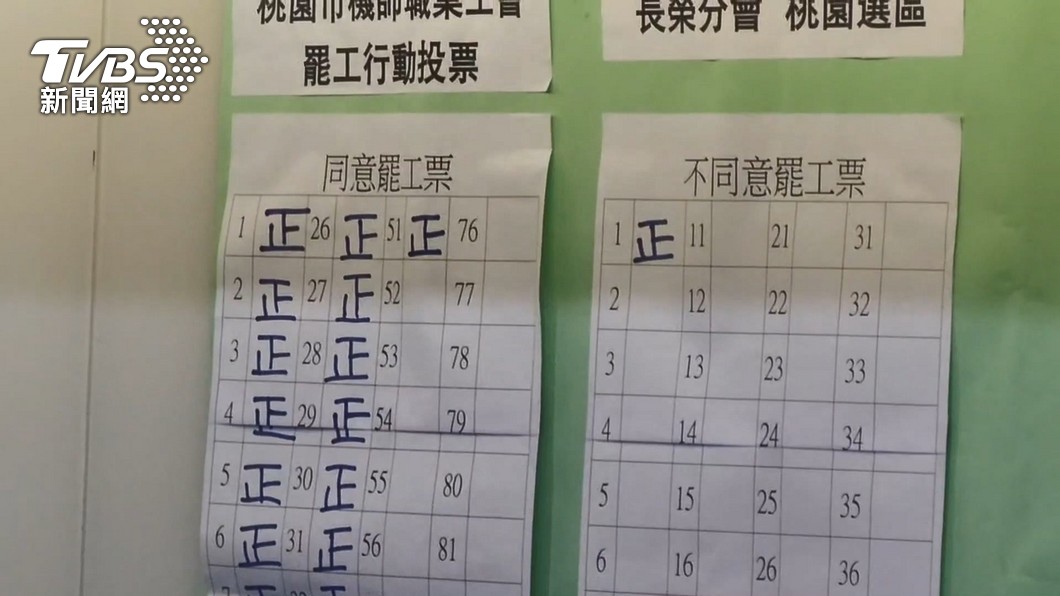 TVBS
新聞網
桃園市機師職業工會
罷工行動投票
長榮分會 桃園選區
同意罷工票
1 正 26 正 51 正 76
2 正 27 正 52 77
3 正 28 正 53 78
4 正 29 正 54 79
5 正 30 正 55 80
6 正 31 正 56 81
不同意罷工票
1 正 11 21 31
2 12 22 32
3 13 23 33
4 14 24 34
5 15 25 35
6 16 26 36